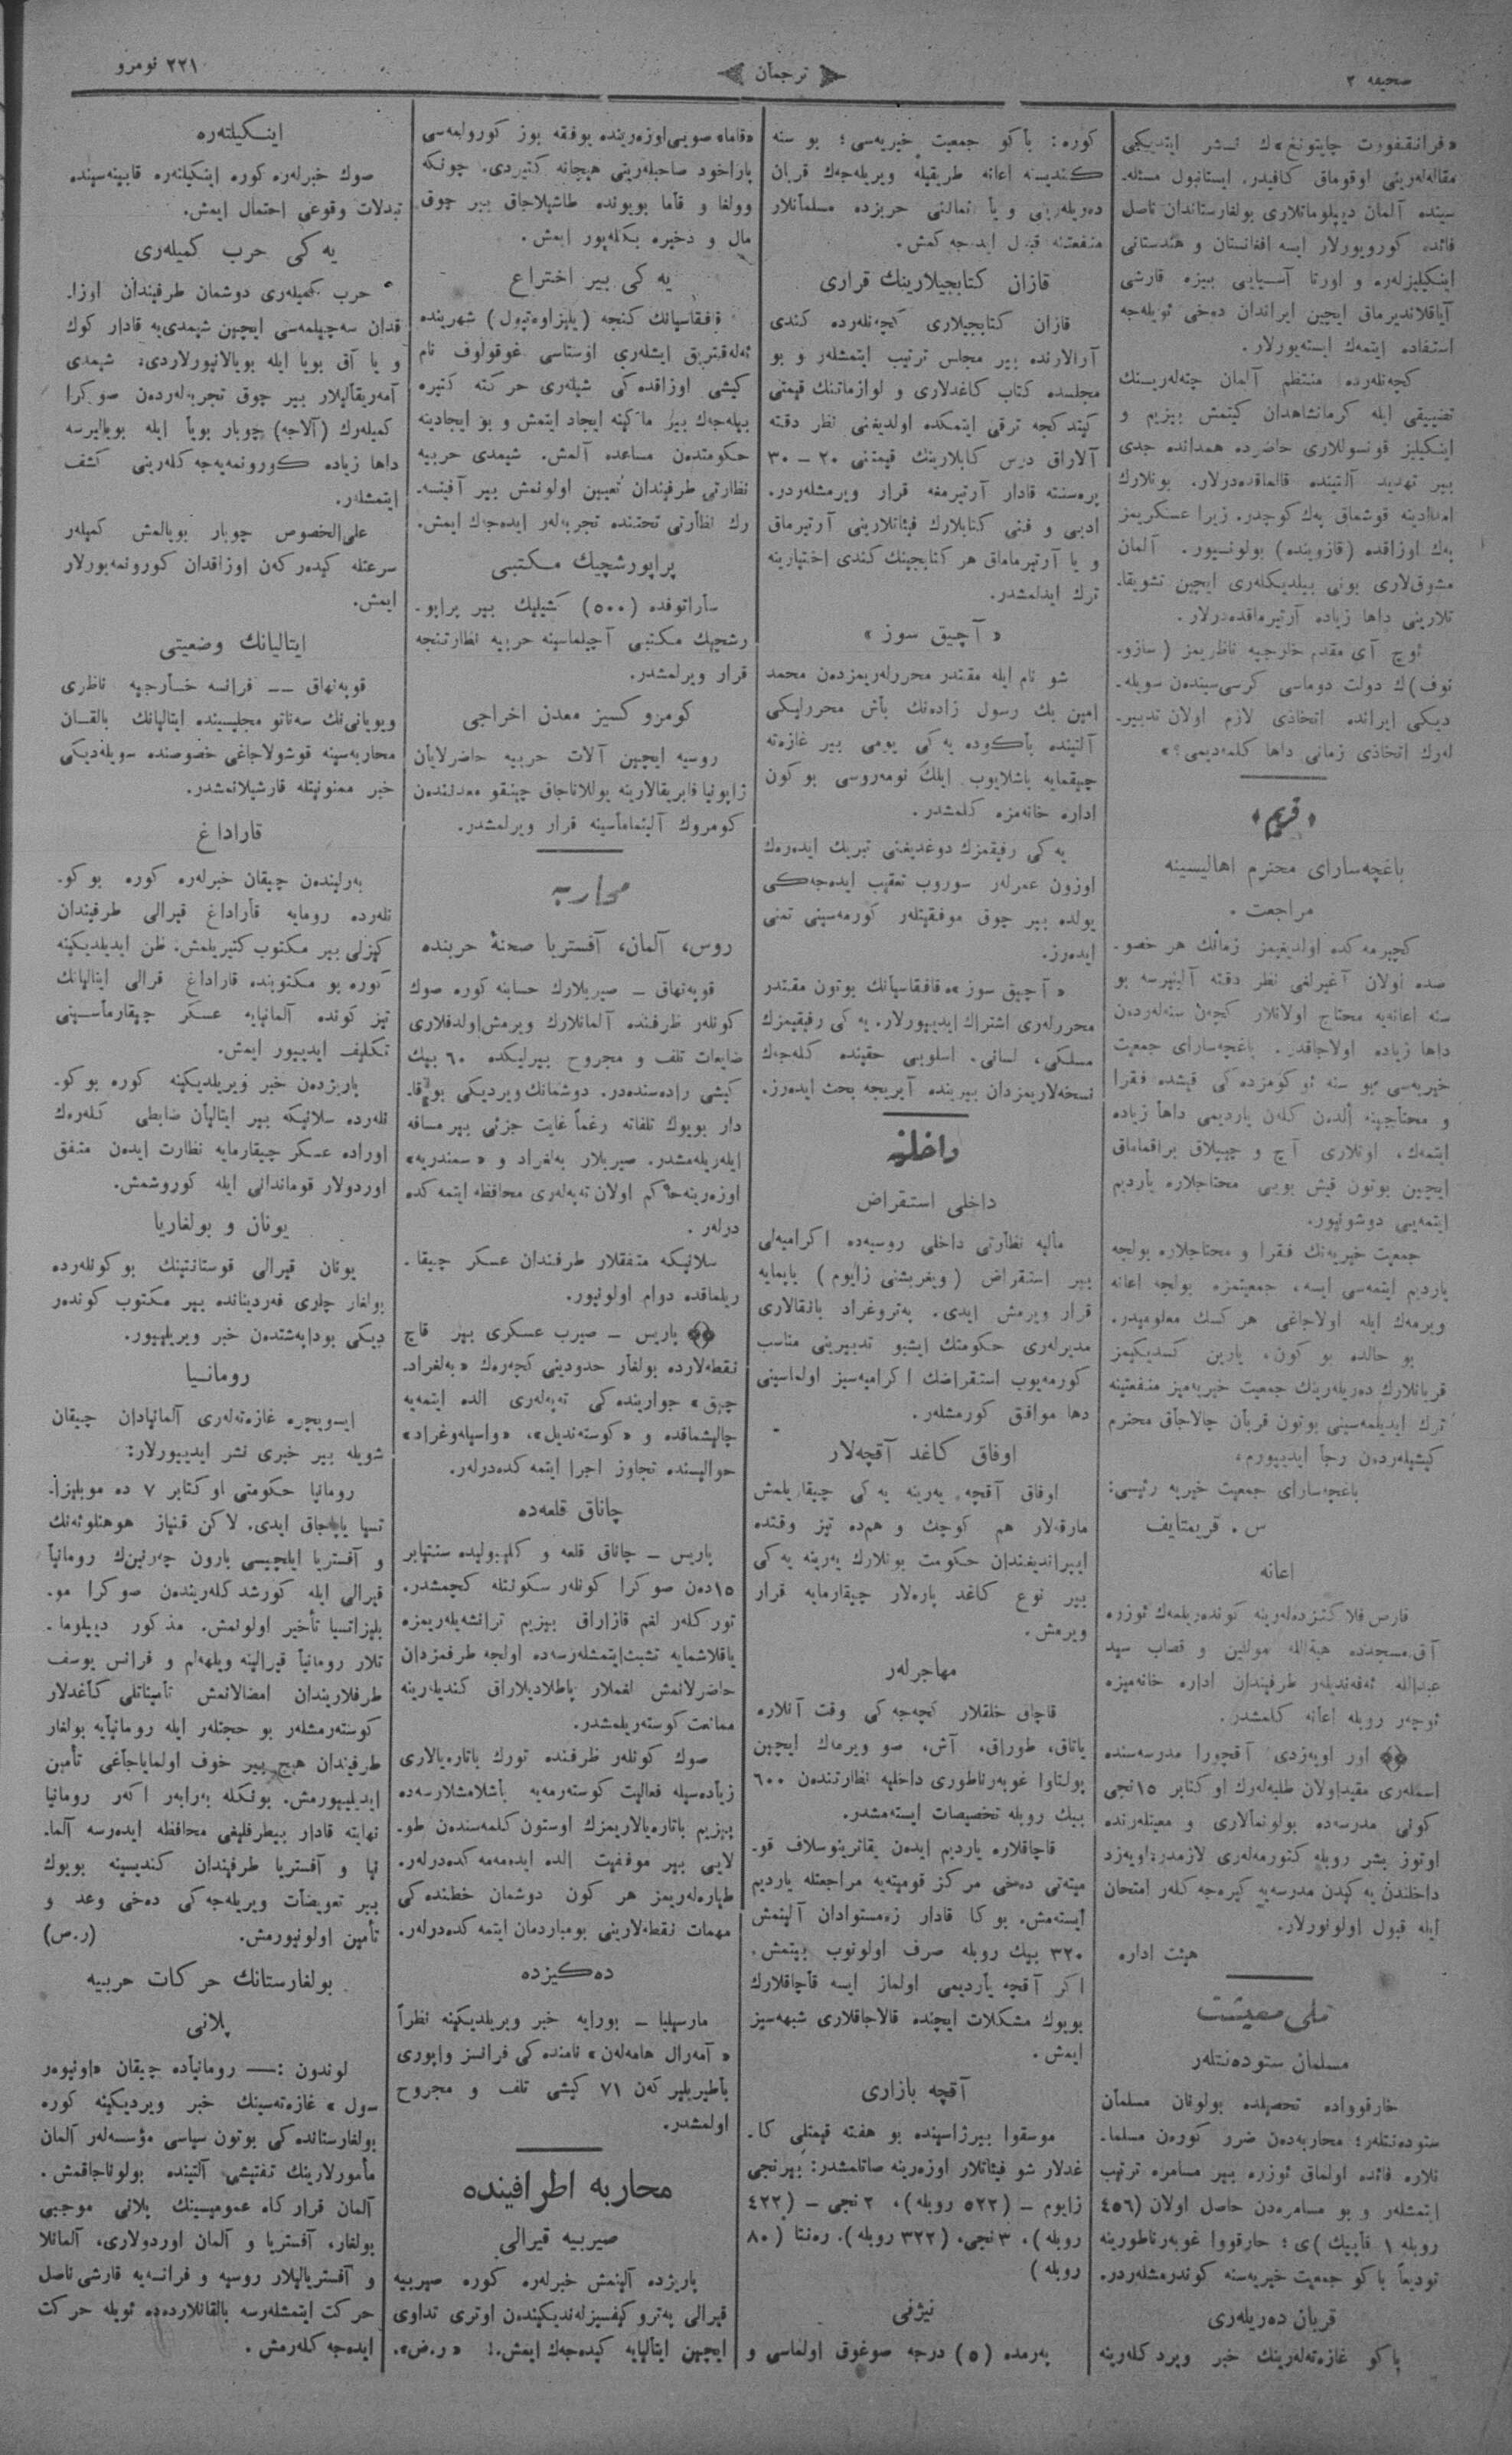 صحيفه ٢
ترجمان
٢٢١ نومرو
«فرانقفورت چايتونغ»ك نشر ايتديكی
مقاله‌لەرينی اوقوماق كافيدر. ايستانبول مسئله‌-
سينده آلمان ديپلوماتلاری بولغارستاندان ناصل
فائده كورويورلار ايسه افغانستان و هندستانی
اينكيليزلەره و اورتا آسيايی بيزه قارشی
آياقلانديرماق ايچين ايراندان دەخی ئويله‌جه
استفاده ايتمەك ايسته‌يورلار.
كچەنلەرده منتظم آلمان چته‌لەرينك
تضييقی ايله كرمانشاهدان كيتمش بيزيم و
اينكيليز قونسوللاری حاضرده همدانده جدی
بير تهديد آلتينده قالماقدەدرلار. بونلارك
امدادينه قوشماق پەك كوچدر. زيرا عسكريمز
پەك اوزاقده (قازوينده) بولونيور. آلمان
مشوق‌لاری بونی بيلديكلەری ايچين تشويقا-
تلارينی داها زياده آرتيرماقدەدرلار.
ئوچ آی مقدم خارجيه ناظريمز (سازو-
نوف)ك دولت دوماسی كرسی‌سيندەن سويله-
ديكی ايرانده اتخاذی لازم اولان تدبير-
لەرك اتخاذی زمانی داها كلمەديمی؟»
«قريم»
باغچه‌سارای محترم اهاليسينه
مراجعت.
كچيرمەكده اولديغيمز زمانك هر خصو-
صده اولان آغيرلغی نظر دقته آلينيرسه بو
سنه اعانه‌يه محتاج اولانلار كچەن سنه‌لەردەن
داها زياده اولاجاقدر. باغچه‌سارای جمعيت
خيريه‌سی بو سنه ئوكومزدەكی قيشده فقرا
و محتاجينه ألدەن كلەن يارديمی داها زياده
ايتمەك، اونلاری آچ و چيپلاق براقماماق
ايچين بوتون قيش بويی محتاجلاره يارديم
ايتمه‌يی دوشونيور.
جمعيت خيريه‌نك فقرا و محتاجلاره بولجه
يارديم ايتمه‌سی ايسه، جمعيتمزه بولجه اعانه
ويرمەك ايله اولاجاغی هر كسك معلوميدر.
بو حالده بو كون، يارين كسديكيمز
قربانلارك دەريلەرينك جمعيت خيريه‌ميز منفعتينه
ترك ايديلمه‌سينی بوتون قربان چالاجاق محترم
كيشيلەردەن رجا ايدييورم.
باغچه‌سارای جمعيت خيريه رئيسی:
س. قريمتايف
اعانه
قارص فلاكتزده‌لەرينه كوندەريلمەك ئوزره
آق‌مسجدده هبةالله مولين و قصاب سيد
عبدالله ئەفەنديلەر طرفيندان اداره خانه‌ميزه
ئوچەر روبله اعانه كلمشدر.
اور اويەزدی آقچورا مدرسه‌سنده
اسملەری مقيد اولان طلبه‌لەرك اوكتابر ١٥نجی
كونی مدرسه‌ده بولونمالاری و معيتلەرنده
اوتوز بشر روبله كتورمه‌لەری لازمدر. اويەزد
داخلندن يەكيدن مدرسه‌يه كيره‌جەكلەر امتحان
ايله قبول اولونورلار.
هيئت اداره
ملی معيشت
مسلمان ستودەنتلەر
خارقوواده تحصيلده بولونان مسلمان
ستودەنتلەر؛ محاربه‌دەن ضرر كورەن مسلما-
نلاره فائده اولماق ئوزره بير مسامره ترتيب
ايتمشلەر و بو مسامره‌دن حاصل اولان (٤٥٦
روبله ١ قاپيك)ی؛ خارقووا غوبەرناطورينه
توديعاً باكو جمعيت خيريه‌سنه كوندرمشلەردر.
قربان دەريلەری
باكو غازەته‌لەرينك خبر ويردكلەرينه
كوره: باكو جمعيت خيريه‌سی؛ بو سنه
كنديسنه اعانه طريقيله ويريله‌جەك قربان
دەريلەرينی و يا ثمالنی حربزده مسلمانلار
منفعتنه قبول ايده‌جەكمش.
قازان كتابجيلارينك قراری
قازان كتابجيلاری كچەنلەرده كندی
آرالارنده بير مجلس ترتيب ايتمشلەر و بو
مجلسده كتاب كاغدلاری و لوازماتنك قيمتی
كيتدكجه ترقی ايتمكده اولديغنی نظر دقته
آلاراق درس كتابلارينك قيمتنی ٢٠ – ٣٠
پرەسنته قادار آرتيرمغه قرار ويرمشلەردر.
ادبی و فنی كتابلارك فيئاتلارينی آرتيرماق
و يا آرتيرماماق هر كتابجينك كندی اختيارينه
ترك ايدلمشدر.
«آچيق سوز»
شو نام ايله مقتدر محررلەريمزدەن محمد
امين بك رسول زادەنك باش محررليكی
آلتينده باكوده يەكی يومی بير غازەته
چيقمايه باشلايوب ايلك نومەروسی بو كون
اداره خانه‌مزه كلمشدر.
يەكی رفيقمزك دوغديغنی تبريك ايدەرەك
اوزون عمرلەر سوروب تعقيب ايده‌جەكی
يولده بير چوق موفقيتلەر كورمه‌سينی تمنی
ايدەرز.
«آچيق سوز»ه قافقاسيانك بوتون مقتدر
محررلەری اشتراك ايدييورلار. يەكی رفيقيمزك
مسلكی، لسانی، اسلوبی حقينده كله‌جەك
نسخه‌لاريمزدان بيرينده آيريجه بحث ايدەرز.
داخليه
داخلی استقراض
ماليه نظارتی داخلی روسيه‌ده اكراميه‌لی
بير استقراض (ويغريشنی زايوم) ياپمايه
قرار ويرمش ايدی. پەتروغراد بانقالاری
مديرلەری حكومتك ايشبو تدبيرينی مناسب
كورمه‌يوب استقراضك اكراميه‌سيز اولماسينی
دها موافق كورمشلەر.
اوفاق كاغد آقچه‌لار
اوفاق آقچه يەرينه يەكی چيقاريلمش
مارقه‌لار هم كوچك و همده تيز وقتده
ايپرانديغندان حكومت بونلارك يەرينه يەكی
بير نوع كاغد پاره‌لار چيقارمايه قرار
ويرمش.
مهاجرلەر
قاچاق خلقلار كچه‌جەكی وقت آنلاره
ياتاق، طوراق، آش، صو ويرمەك ايچين
پولتاوا غوبەرناطوری داخليه نظارتندەن ٦٠٠
بيك روبله تخصيصات ايسته‌مشدر.
قاچاقلاره يارديم ايدەن يقاترينوسلاف قو-
ميته‌تی دەخی مركز قوميته‌يه مراجعتله يارديم
ايسته‌مش. بوكا قادار زەمستوادان آلينمش
٣٢٠ بيك روبله صرف اولونوب بيتمش.
اكر آقچه يارديمی اولماز ايسه قاچاقلارك
بويوك مشكلات ايچنده قالاجاقلاری شبهه‌سيز
ايمش.
آقچه بازاری
موسقوا بيرژاسينده بو هفته قيمتلی كا-
غدلار شو فيئاتلار اوزەرينه صاتلمشدر: بيرنجی
زايوم – (٥٢٢ روبله)، ٢نجی – (٤٢٢
روبله)، ٣نجی، (٣٢٢ روبله). رەنتا (٨٠
روبله)
نيژنی
پەرمده (٥) درجه صوغوق اولماسی و
«قاما» صويی اوزەرينده يوفقه بوز كورولمه‌سی
پاراخود صاحبلەرينی هيجانه كتيردی. چونكه
وولغا و قاما بويونده طاشيلاجاق بير چوق
مال و دخيره بكله‌يور ايمش.
يەكی بير اختراع
قافقاسيانك كنجه (يليزاوەتپول) شهرينده
ئەلەقتريق ايشلەری اوستاسی غوقولوف نام
كيشی اوزاقدەكی شيلەری حركته كتيره
بيله‌جەك بير ماكينه ايجاد ايتمش و بو ايجادينه
حكومتدەن مساعده آلمش. شيمدی حربيه
نظارتی طرفيندان تعيين اولونمش بير آفيتسه-
رك نظارتی تحتنده تجربه‌لەر ايده‌جەك ايمش.
پراپورشچيك مكتبی
ساراتوفده (٥٠٠) كشيليك بير پراپو-
رشچيك مكتبی آچيلماسينه حربيه نظارتنجه
قرار ويرلمشدر.
كومروكسيز معدن اخراجی
روسيه ايچين آلات حربيه حاضرلايان
ژاپونيا فابريقالارينه يوللاناجاق چينقو معدنندەن
كومروك آلينماماسينه قرار ويرلمشدر.
محاربه
روس، آلمان، آفستريا صحنۀ حربنده
قوپەنهاق – صيربلارك حسابنه كوره صوك
كونلەر ظرفنده آلمانلارك ويرمش اولدقلاری
ضايعات تلف و مجروح بيرليكده ٦٠ بيك
كيشی رادەسنده‌در. دوشمانك ويرديكی بو قا-
دار بويوك تلفاته رغماً غايت جزئی بير مسافه
ايلەريله‌مشدر. صيربلار بەلغراد و «سمندريه»
اوزەرينه حاكم اولان تەپه‌لەری محافظه ايتمەكده
درلەر.
سلانيكه متفقلار طرفندان عسكر چيقا-
ريلماقده دوام اولونيور.
پاريس – صيرب عسكری بير قاچ
نقطه‌لارده بولغار حدودينی كچەرەك «بەلغراد-
چيق» جوارينده‌كی تەپه‌لەری الده ايتمه‌يه
چاليشماقده و «كوستەنديل»، «واسيله‌وغراد»
حواليسنده تجاوز اجرا ايتمەكده‌درلەر.
چاناق قلعه‌ده
پاريس – چاناق قلعه و كليبوليده سنتيابر
١٥دەن صوكرا كونلەر سكونتله كچمشدر.
توركلەر لغم قازاراق بيزيم ترانشه‌يلەريمزه
ياقلاشمايه تشبث ايتمشلەرسه‌ده اولجه طرفمزدان
حاضرلانمش لغملار پاطلاديلاراق كنديلەرينه
ممانعت كوستەريلمشدر.
صوك كونلەر ظرفنده تورك باتاره‌يالاری
زياده‌سيله فعاليت كوستەرمه‌يه باشلامشلارسه‌ده
بيزيم باتاره‌يالاريمزك اوستون كلمه‌سندەن طو-
لايی بير موفقيت الده ايده‌مه‌مەكده‌درلەر.
طياره‌لەريمز هر كون دوشمان خطنده‌كی
مهمات نقطه‌لارينی بومباردمان ايتمەكده‌درلەر.
دەكيزده
مارسيليا – بورايه خبر ويريلديكينه نظراً
«آمەرال هامەلەن» نامنده‌كی فرانسز واپوری
باطيريلير كەن ٧١ كيشی تلف و مجروح
اولمشدر.
محاربه اطرافينده
صيربيه قيرالی
پاريزده آلينمش خبرلەره كوره صيربيه
قيرالی پەترو كيفسيزلەنديكيندەن اوتری تداوی
ايچين ايتاليايه كيده‌جەك ايمش.! «ر.ض».
اينكيلتەره
صوك خبرلەره كوره اينكيلتەره قابينه‌سينده
تبدلات وقوعی احتمال ايمش.
يەكی حرب كميلەری
حرب كميلەری دوشمان طرفيندان اوزا-
قدان سەچيلمه‌سی ايچين شيمدی‌يه قادار كوك
و يا آق بويا ايله بويالانيورلاردی؛ شيمدی
آمەريقاليلار بير چوق تجربه‌لەردەن صوكرا
كميلەرك (آلاجه) چوبار بويا ايله بويالير‌سه
داها زياده كورونمه‌يه‌جەكلەرينی كشف
ايتمشلەر.
علی‌الخصوص چوبار بويالمش كميلەر
سرعتله كيدەركەن اوزاقدان كورونمه‌يورلار
ايمش.
ايتاليانك وضعيتی
قوپەنهاق –– فرانسه خارجيه ناظری
ويويانی‌نك سەناتو مجليسينده ايتاليانك بالقان
محاربه‌سينه قوشولاجاغی خصوصنده سويله‌ديكی
خبر ممنونيتله قارشيلانمشدر.
قاراداغ
بەرليندەن چيقان خبرلەره كوره بو كو-
نلەرده رومايه قاراداغ قيرالی طرفيندان
كيزلی بير مكتوب كتيريلمش. ظن ايديلديكينه
كوره بو مكتوبنده قاراداغ قرالی ايتاليانك
تيز كونده آلبانيايه عسكر چيقارماسينی
تكليف ايدييور ايمش.
پاريزدەن خبر ويريلديكينه كوره بو كو-
نلەرده سلانيكه بير ايتاليان ضابطی كلەرەك
اوراده عسكر چيقارمايه نظارت ايدەن متفق
اوردولار قوماندانی ايله كوروشمش.
يونان و بولغاريا
يونان قيرالی قوستانتينك بو كونلەرده
بولغار چاری فەرديناندە بير مكتوب كوندەر
ديكی بوداپەشتدەن خبر ويريلييور.
رومانيا
ايسويچره غازەته‌لەری آلمانيادان چيقان
شويله بير خبری نشر ايدييورلار:
رومانيا حكومتی اوكتابر ٧ ده موبليزا-
تسيا ياپاجاق ايدی. لاكن قنياز هوهنلوئەنك
و آفستريا ايلچيسی بارون چەرنين‌ك رومانيا
قيرالی ايله كورشدكلەريندەن صوكرا مو-
بليزاتسيا تأخير اولونمش. مذكور ديپلوما-
تلار رومانيا قيرالينه ويلهەلم و فرانس يوسف
طرفلاريندان امضالانمش تأميناتلی كاغدلار
كوستەرمشلەر بو حجتلەر ايله رومانيايه بولغار
طرفيندان هيچ بير خوف اولماياجاغی تأمين
ايديلييورمش. بونكله بەرابەر اكەر رومانيا
نهايته قادار بيطرفليغی محافظه ايدەرسه آلما-
نيا و آفستريا طرفيندان كنديسينه بويوك
بير تعويضات ويريله‌جەكی دەخی وعد و
تأمين اولونيورمش. (ر.ض)
بولغارستانك حركات حربيه
پلانی
لوندون :— رومانياده چيقان «اونيوەر
سول» غازەته‌سينك خبر ويرديكينه كوره
بولغارستانده‌كی بوتون سياسی مؤسسه‌لەر آلمان
مأمورلارينك تفتيشی آلتينده بولوناجاقمش.
آلمان قراركاه عموميسينك پلانی موجبی
بولغار، آفستريا و آلمان اوردولاری، آلمانلا
و آفسترياليلار روسيه و فرانسه‌يه قارشی ناصل
حركت ايتمشلەرسه بالقانلارده‌ده ئويله حركت
ايده‌جەكلەرمش.